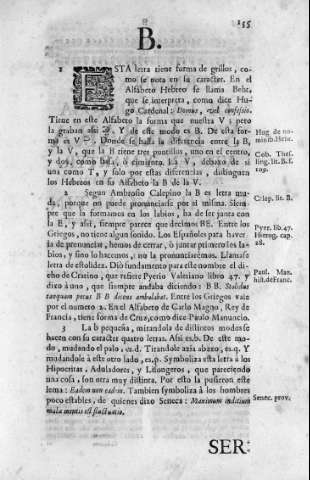 155
B.
1 ESTA letra tiene forma de grillos, co-
mo se nota en su caracter. En el
Alfabeto Hebreo se llama Behc,
que se interpreta, como dice Hu-
go Cardenal: Domus, vel confessio.
Tiene en este Alfabeto la forma que nuestra V: pero
la graban assi. Y de este modo es B. De esta for-
ma es V. Donde se halla la diferencia entre la B,
y la V, que la B tiene tres puntillos, uno en el centro,
y dos, como basa, ò cimiento. La V, debaxo de si
una como T, y solo por estas diferencias, distinguen
los Hebreos en su Alfabeto la B de la V.
2 Segun Ambrosio Calepino la B es letra mu-
da, porque no puede pronunciarse por si misma. Siem-
pre que la formamos en los labios, ha de ser junta con
la E, y assi, siempre parece que decimos BE. Entre los
Griegos, no tiene algun sonido. Los Españoles para haver-
la de pronunciar, hemos de cerrar, ò juntar primero los la-
bios, y sino lo hacemos, no la pronunciarémos. Llamase
letra de estolidez. Diò fundamento para este nombre el di-
cho de Cratino, que refiere Pyerio Valeriano libro 47. y
dixo à uno, que siempre andaba diciendo: BB. Stolidus
tanquam pecus B B dicens ambulabat. Entre los Griegos vale
por el numero 2. En el Alfabeto de Carlo Magno, Rey de
Francia, tiene forma de Cruz, como dice Paulo Manuncio.
3 La b pequeña, mirandola de distintos modos se
hacen con su caracter quatro letras. Assi es.b. De este mo-
do, mudando el palo, es.d. Tirandole àzia abaxo, es.q. Y
mudandole à este otro lado, es.p. Symboliza esta letra à los
Hipocritas, Aduladores, y Lisongeros, que pareciendo
una cosa, son otra muy distinta. Por esto la pusieron este
lema: Eadem non eadem. Tambien symboliza à los hombres
poco estables, de quienes dixo Seneca: Maximum indicium
malæ mentis est fluctuatio.
Hug. de no-
minib. Hebr.
Cob. Thes.
ling. lit. B. f.
Calep. lit. B.
Pyer. lib. 47.
Hierog. cap.
28.
Paul. Man.
hist. de Franc.
Senec. prov.
SER: